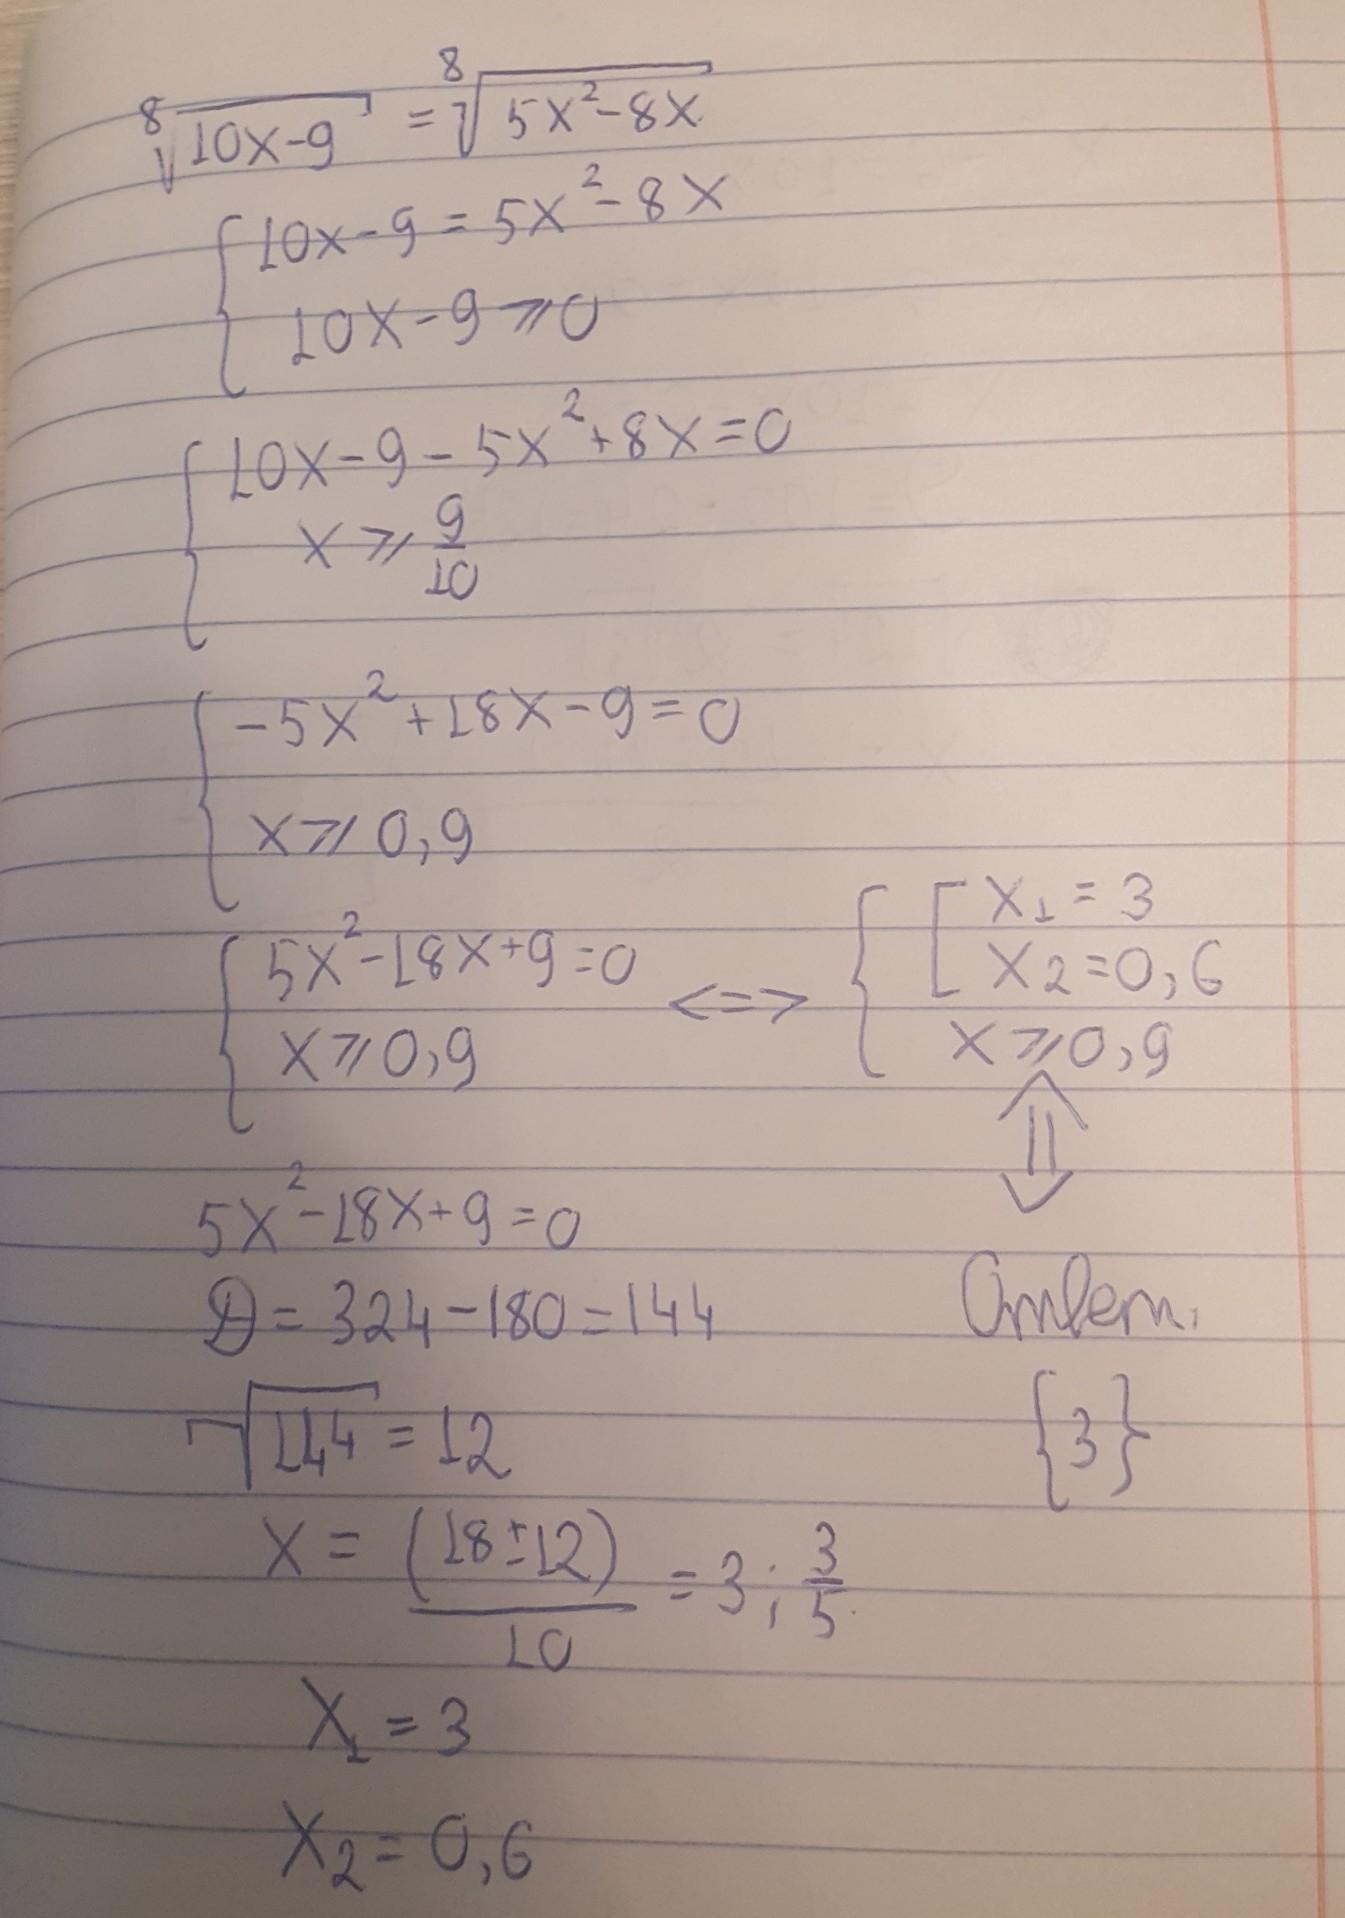 ⁸√(10x-9) = ⁸√(5x²-8x)
{ 10x-9 = 5x²-8x
10x-9 ⩾ 0
{ 10x-9-5x²+8x=0
x ⩾ 9/10
{ -5x²+18x-9=0
x ⩾ 0,9
{ 5x²-18x+9=0 <=> { [ x₁ = 3
x₂ = 0,6
x ⩾ 0,9 x ⩾ 0,9
⇕
5x²-18x+9=0
D = 324-180=144 Ответ:
√144 = 12 {3}
x = (18±12)/10 = 3; 3/5
x₁ = 3
x₂ = 0,6